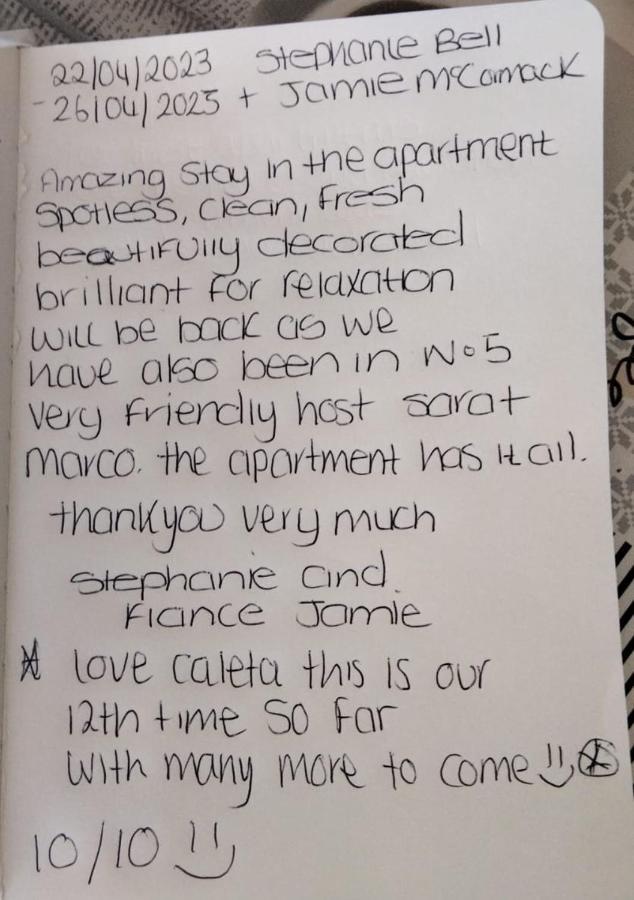 22/04/2023 Stephanie Bell
- 26/04/2023 + Jamie McCormack
Amazing Stay in the apartment
Spotless, clean, Fresh
beautifully decorated
brilliant for relaxation
will be back as we
have also been in No5
very friendly host sarat
marco. the apartment has it all.
thankyou very much
Stephanie and
Fiance Jamie
love caleta this is our
12th time So far
with many more to come
10/10